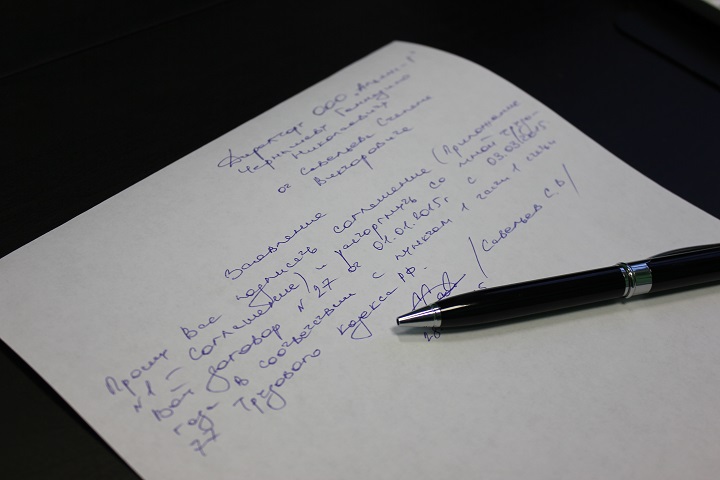 Директору ООО „Апельс-Р"
Чернышеву Геннадию
Николаевичу
от Савельева Степана
Викторовича
Заявление
Прошу Вас подписать соглашение (Приложение
N1 – Соглашение) и расторгнуть со мной трудо-
вой договор N 27 от 01.01.2015г. с 03.03.2015
года в соответствии с пунктом 1 части 1 статьи
77 Трудового кодекса РФ.
/Савельев С.В/